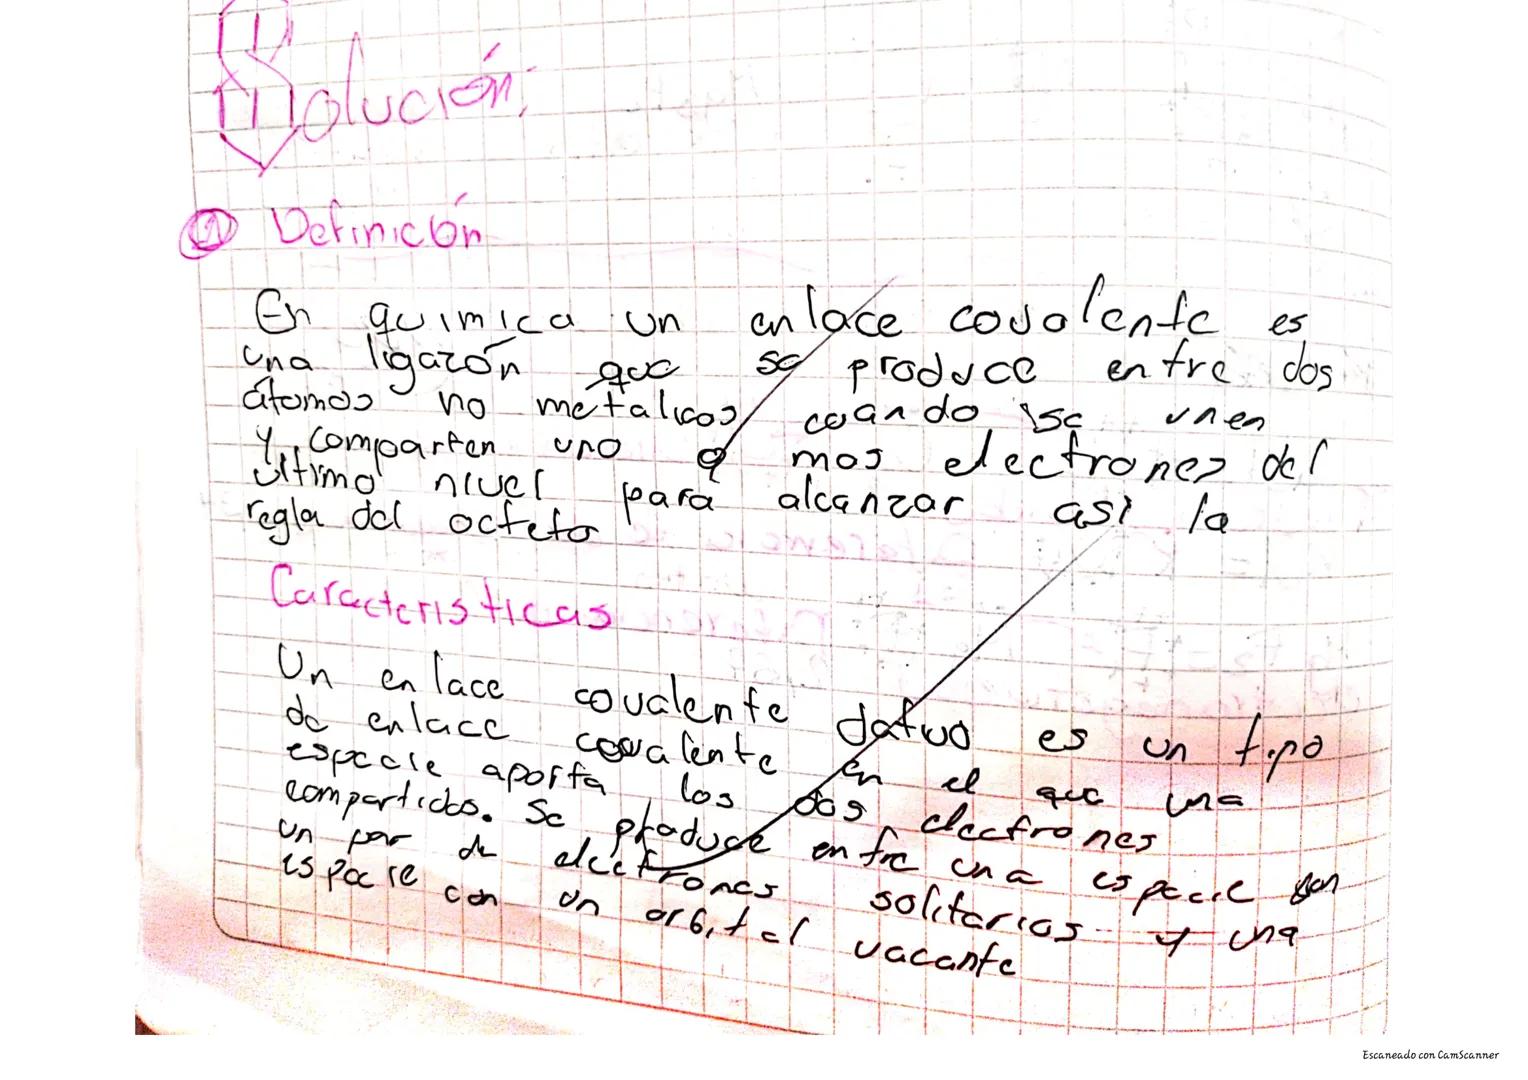 Solución:
a Definición
En quimica un enlace covalente es
una ligazón que se produce entre dos
átomos no metalicos cuando se unen
y comparten uno o mas electrones del
ultimo nivel para alcanzar así la
regla del octeto
Caracteristicas
Un enlace covalente dativo es un tipo
de enlace covalente en el que una
especie aporta los dos electrones
compartidos. Se produce entre una especie con
un par de electrones solitarios y una
especie con un orbital vacante
Escaneado con CamScanner